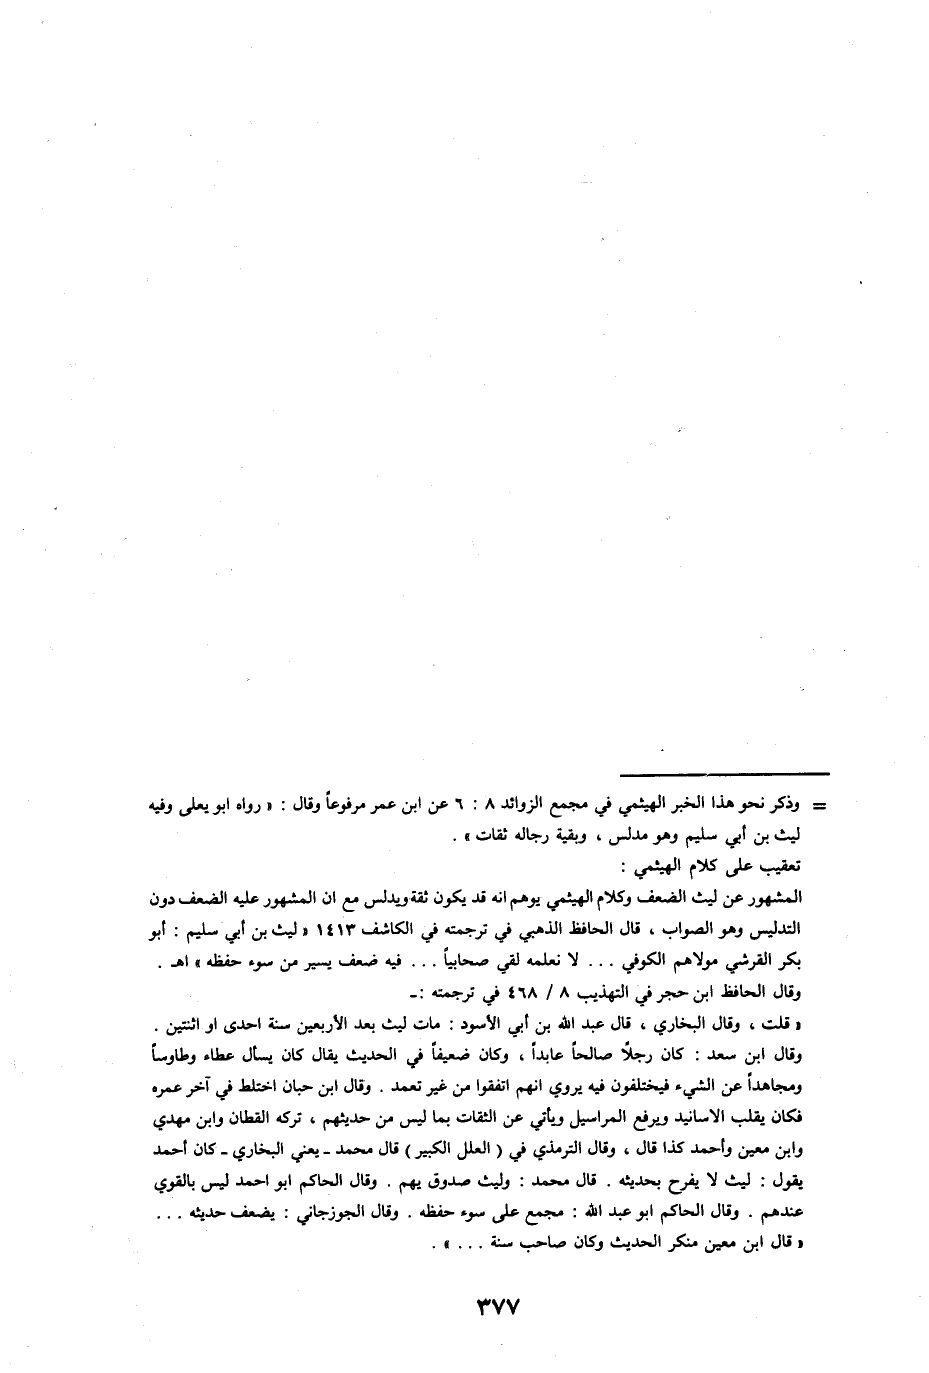 = وذكر نحو هذا الخبر الهيثمي في مجمع الزوائد ٨ : ٦ عن ابن عمر مرفوعاً وقال : « رواه ابو يعلى وفيه
ليث بن أبي سليم وهو مدلس ، وبقية رجاله ثقات » .
تعقيب على كلام الهيثمي :
المشهور عن ليث الضعف وكلام الهيثمي يوهم انه قد يكون ثقة ويدلس مع ان المشهور عليه الضعف دون
التدليس وهو الصواب ، قال الحافظ الذهبي في ترجمته في الكاشف ١٤١٣ « ليث بن أبي سليم : أبو
بكر القرشي مولاهم الكوفي . . . لا نعلمه لقي صحابياً . . . فيه ضعف يسير من سوء حفظه » اهـ .
وقال الحافظ ابن حجر في التهذيب ٨ / ٤٦٨ في ترجمته :ـ
« قلت ، وقال البخاري ، قال عبد الله بن أبي الأسود : مات ليث بعد الأربعين سنة احدى او اثنتين .
وقال ابن سعد : كان رجلاً صالحاً عابداً ، وكان ضعيفاً في الحديث يقال كان يسأل عطاء وطاوساً
ومجاهداً عن الشيء فيختلفون فيه يروي انهم اتفقوا من غير تعمد . وقال ابن حبان اختلط في آخر عمره
فكان يقلب الاسانيد ويرفع المراسيل ويأتي عن الثقات بما ليس من حديثهم ، تركه القطان وابن مهدي
وابن معين وأحمد كذا قال ، وقال الترمذي في ( العلل الكبير ) قال محمد ـ يعني البخاري ـ كان أحمد
يقول : ليث لا يفرح بحديثه . قال محمد : وليث صدوق يهم . وقال الحاكم ابو احمد ليس بالقوي
عندهم . وقال الحاكم ابو عبد الله : مجمع على سوء حفظه . وقال الجوزجاني : يضعف حديثه . . .
« قال ابن معين منكر الحديث وكان صاحب سنة . . . » .
٣٧٧